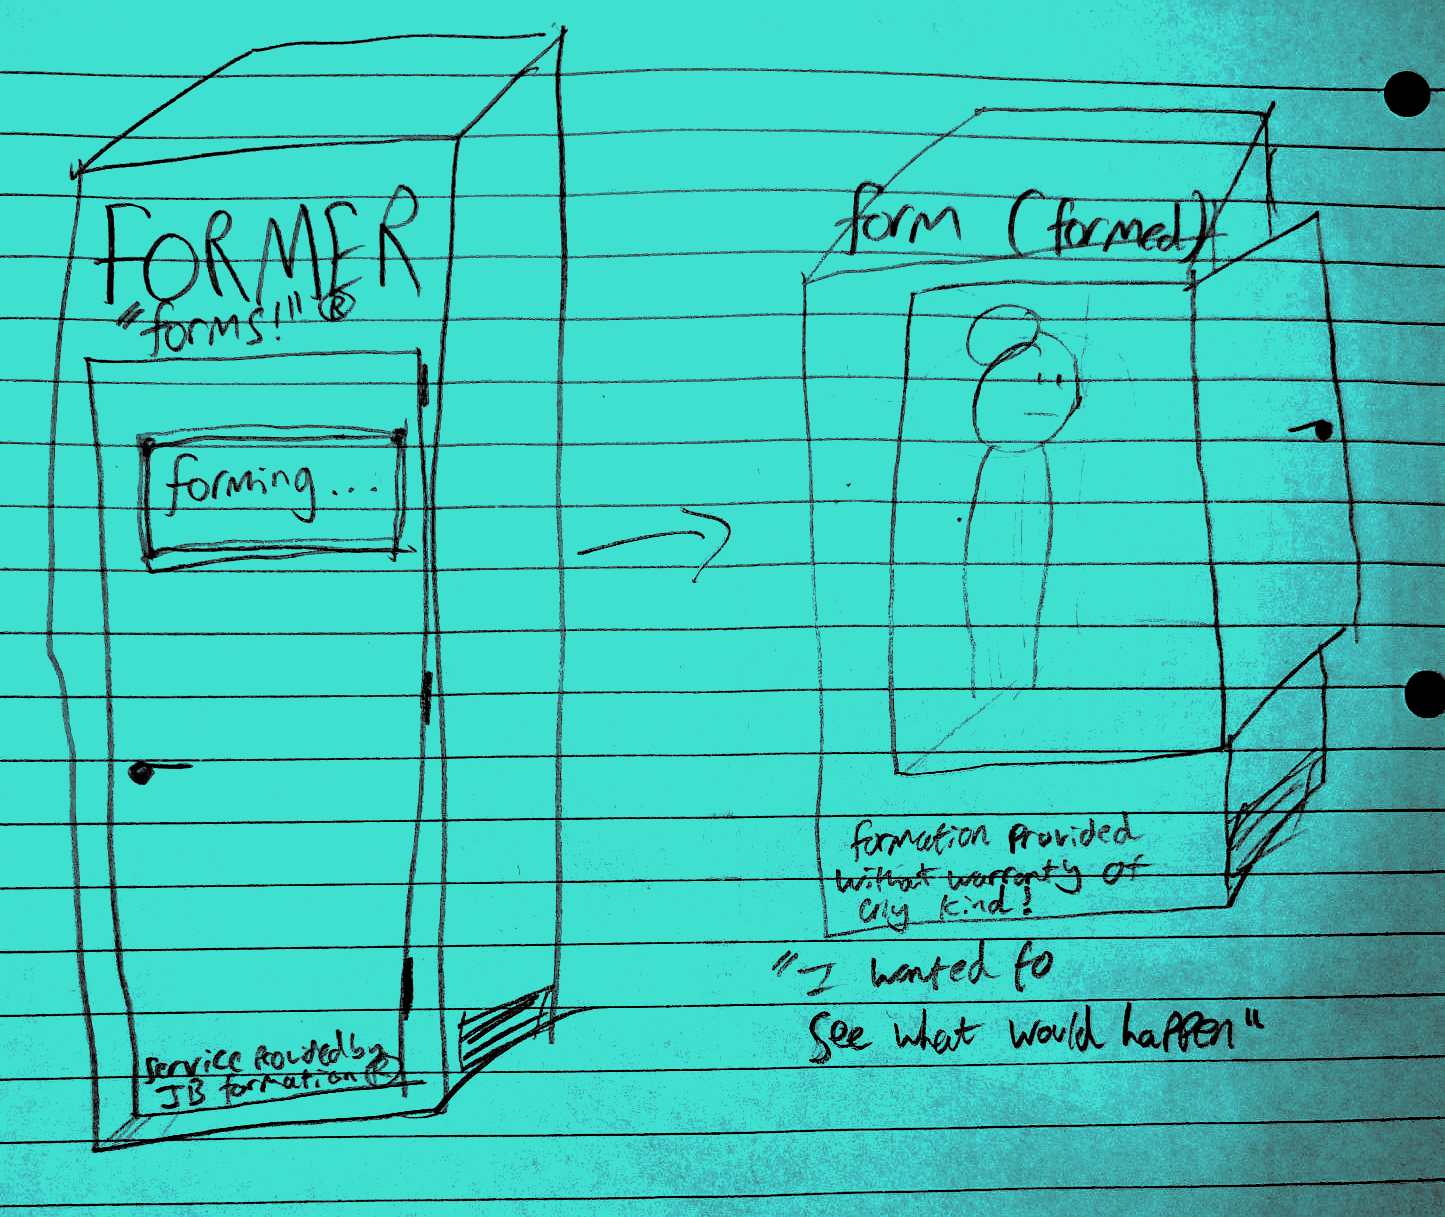 FORMER
"forms!" ®
forming...
service provided by
JB formation ®
form (formed)
formation provided
without warranty of
any kind!
"I wanted to
see what would happen"